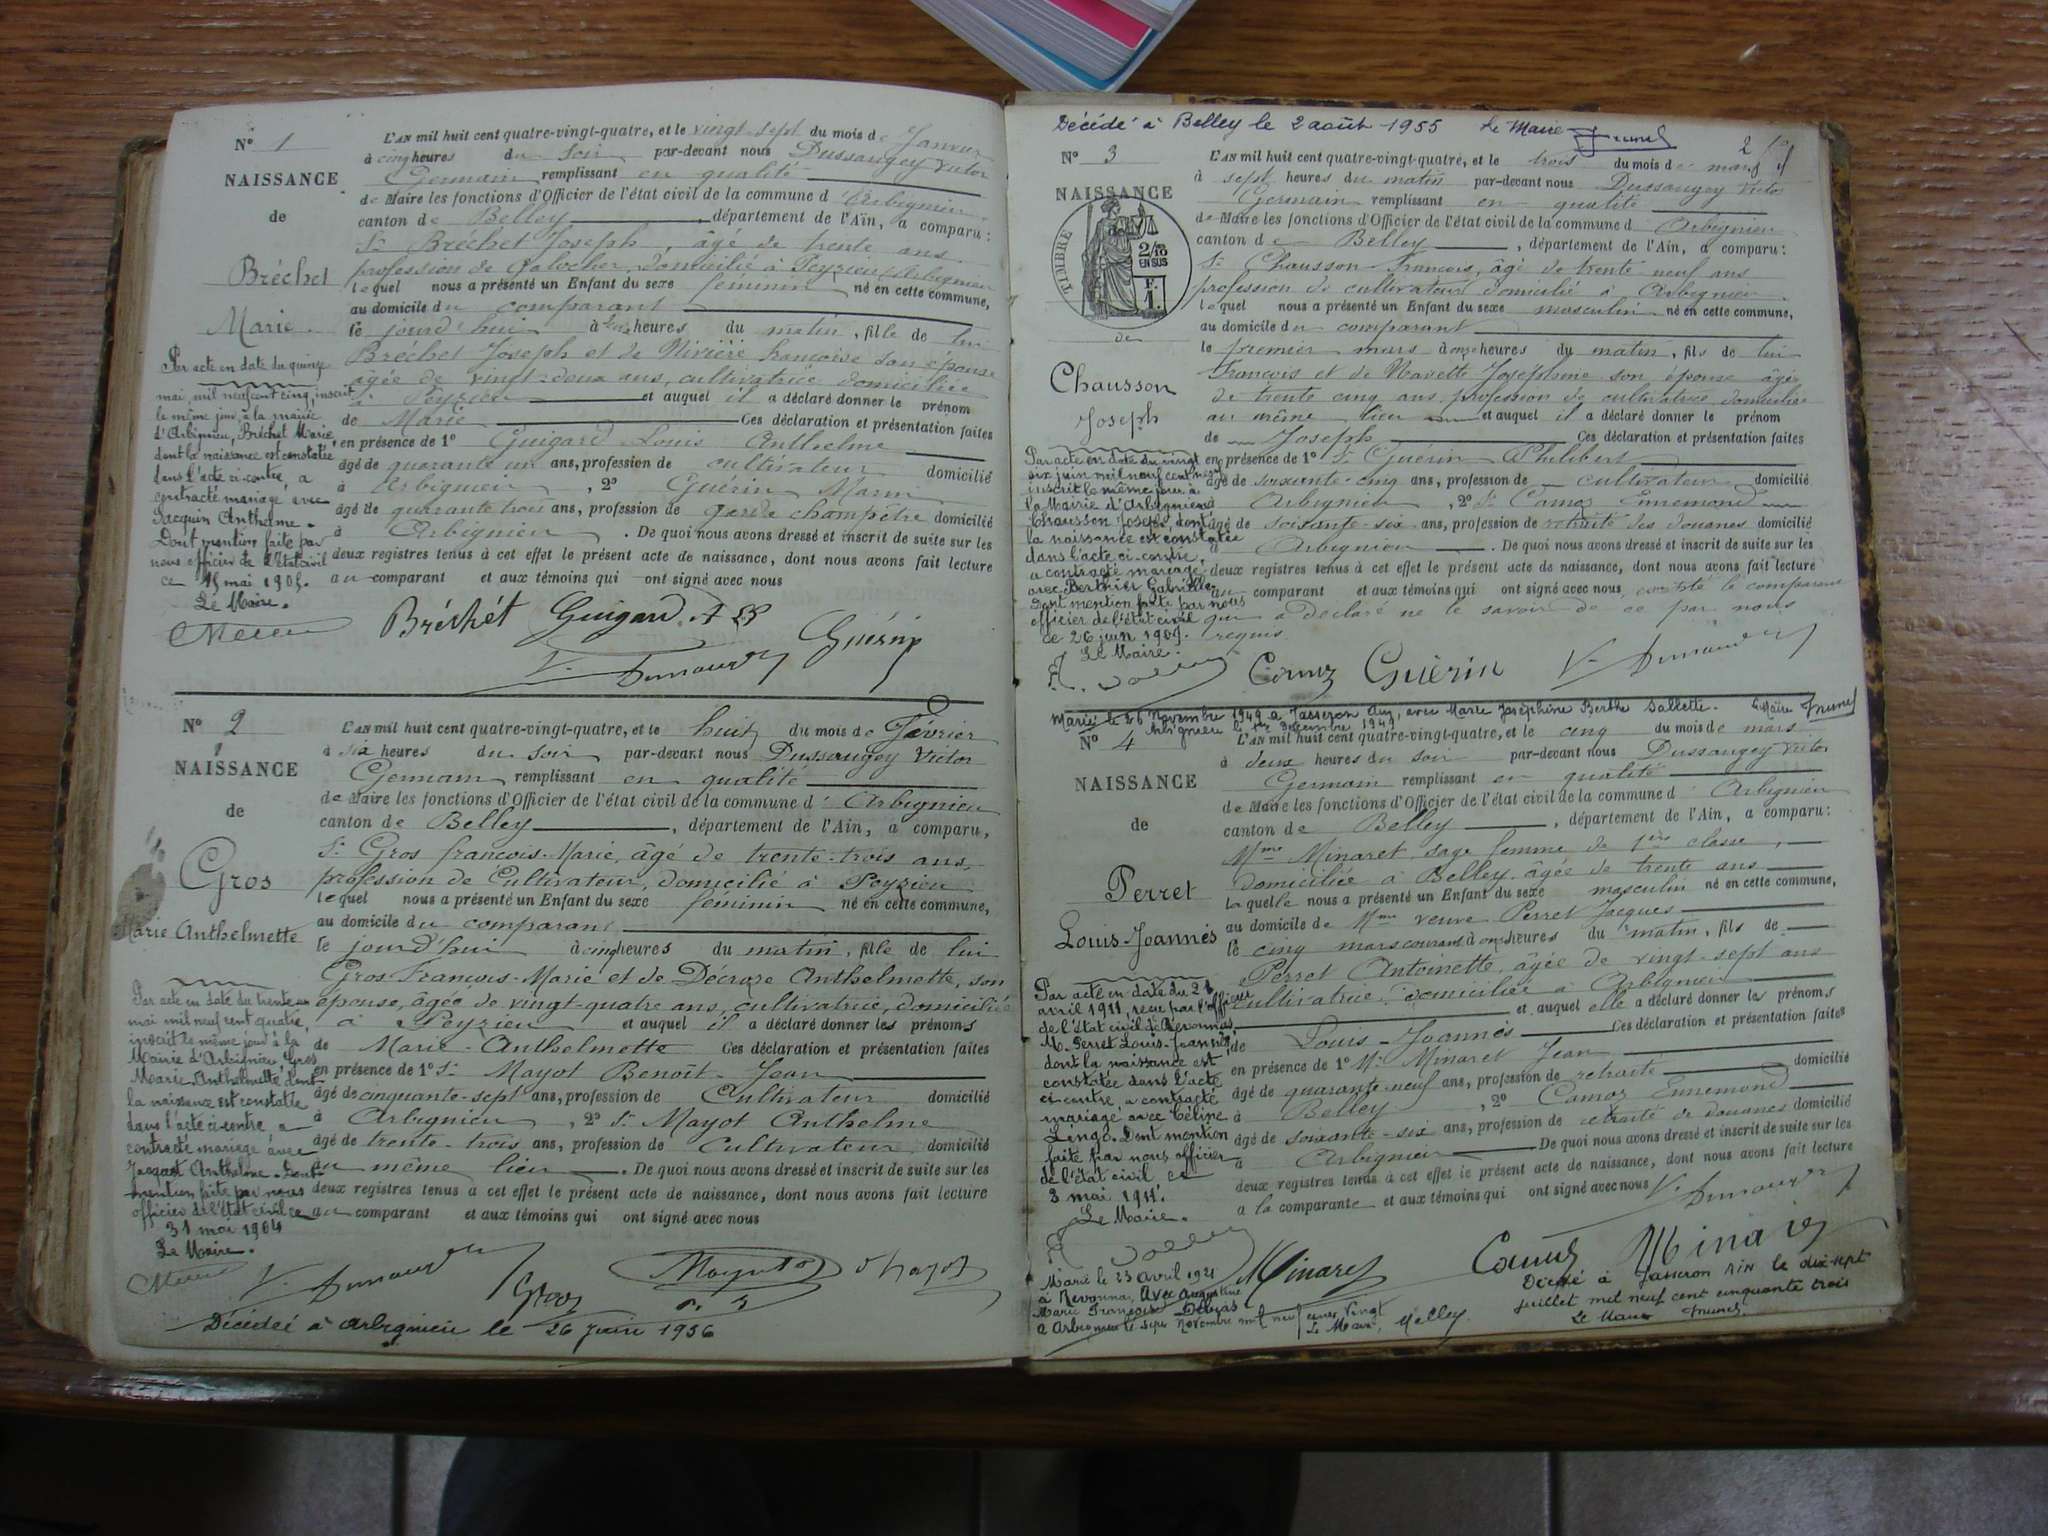 N° 1
NAISSANCE
de
Bréchet
Marie
L'AN mil huit cent quatre-vingt-quatre, et le vingt-sept du mois de Janvier
à cinq heures du soir par-devant nous Dussaugey Victor
Germain remplissant en qualité
de Maire les fonctions d'Officier de l'état civil de la commune d'Arbignieu
canton de Belley, département de l'Ain, a comparu:
Sr Bréchet Joseph, âgé de trente ans
profession de Galocher, domicilié à Peyzieu (Arbignieu
lequel nous a présenté un Enfant du sexe féminin né en cette commune,
au domicile du comparant
le jourd'hui à heures du matin, fille de lui
Bréchet Joseph et de Rivière françoise son épouse
âgée de vingt-deux ans, cultivatrice domiciliée
à Peyzieu et auquel il a déclaré donner le prénom
de Marie Ces déclaration et présentation faites
en présence de 1° Guigard Louis Anthelme
âgé de quarante un ans, profession de cultivateur domicilié
à Arbignieu, 2° Guérin Marin
âgé de quarante trois ans, profession de garde champêtre domicilié
à Arbignieu. De quoi nous avons dressé et inscrit de suite sur les
deux registres tenus à cet effet le présent acte de naissance, dont nous avons fait lecture
au comparant et aux témoins qui ont signé avec nous
Par acte en date du quinze
mai, mil neuf cent cinq, inscrit
le même jour, à la mairie
d'Arbignieu, Bréchet Marie,
dont la naissance est constatée
dans l'acte ci-contre, a
contracté mariage avec
Jacquin Anthelme.
Dont mention faite par
nous officier de l'état civil
ce 15 mai 1905.
Le Maire.
Bréchet Guigard Guérin
N° 2
NAISSANCE
de
Gros
Marie Anthelmette
L'AN mil huit cent quatre-vingt-quatre, et le huit du mois de Février
à six heures du soir par-devant nous Dussaugey Victor
Germain remplissant en qualité
de Maire les fonctions d'Officier de l'état civil de la commune d'Arbignieu
canton de Belley, département de l'Ain, a comparu,
Sr Gros françois-Marie, âgé de trente-trois ans,
profession de Cultivateur, domicilié à Peyzieu
lequel nous a présenté un Enfant du sexe féminin né en cette commune,
au domicile du comparant
le jourd'hui à cinq heures du matin, fille de lui
Gros François-Marie et de Décroze Anthelmette, son
épouse, âgée de vingt-quatre ans, cultivatrice, domiciliée
à Peyzieu et auquel il a déclaré donner les prénoms
de Marie-Anthelmette Ces déclaration et présentation faites
en présence de 1° Sr Mayot Benoît-Jean
âgé de cinquante-sept ans, profession de Cultivateur domicilié
à Arbignieu, 2° Sr Mayot Anthelme
âgé de trente-trois ans, profession de Cultivateur domicilié
au même lieu. De quoi nous avons dressé et inscrit de suite sur les
deux registres tenus à cet effet le présent acte de naissance, dont nous avons fait lecture
au comparant et aux témoins qui ont signé avec nous
Par acte en date du trente un
mai mil neuf cent quatre,
inscrit le même jour à la
Mairie d'Arbignieu, Gros
Marie-Anthelmette dont
la naissance est constatée
dans l'acte ci-contre a
contracté mariage avec
Anthelme. Dont
mention faite par nous
officier de l'état civil ce
31 mai 1904
Le Maire.
Gros Mayot
Décédée à Arbignieu le 26 juin 1956
Décédé à Belley le 2 août 1955 Le Maire
2
N° 3
NAISSANCE
TIMBRE
2/10
EN SUS
F.
1.
de
Chausson
Joseph
L'AN mil huit cent quatre-vingt-quatre, et le trois du mois de mars
à sept heures du matin par-devant nous Dussaugey Victor
Germain remplissant en qualité
de Maire les fonctions d'Officier de l'état civil de la commune d'Arbignieu
canton de Belley, département de l'Ain, a comparu:
Sr Chausson François, âgé de trente-neuf ans
profession de cultivateur domicilié à Arbignieu
lequel nous a présenté un Enfant du sexe masculin né en cette commune,
au domicile du comparant
le premier mars à onze heures du matin, fils de lui
François et de Navette Joséphine son épouse âgée
de trente cinq ans profession de cultivatrice domiciliée
au même lieu et auquel il a déclaré donner le prénom
de Joseph Ces déclaration et présentation faites
en présence de 1° Sr Guérin Philibert
âgé de soixante-cinq ans, profession de cultivateur domicilié
à Arbignieu, 2° Sr Camoz Ennemond
âgé de soixante-six ans, profession de retraité des douanes domicilié
à Arbignieu. De quoi nous avons dressé et inscrit de suite sur les
deux registres tenus à cet effet le présent acte de naissance, dont nous avons fait lecture
au comparant et aux témoins qui ont signé avec nous excepté le comparant
qui a déclaré ne le savoir de ce par nous
requis
Par acte en date du vingt
six juin mil neuf cent neuf
inscrit le même jour à
la Mairie d'Arbignieu
Chausson Joseph, dont
la naissance est constatée
dans l'acte ci-contre,
a contracté mariage
avec Berthier Gabrielle
Dont mention faite par nous
officier de l'état civil
ce 26 juin 1909.
Le Maire.
Camoz Guérin
Marié le 26 Novembre 1949 à Jasseron Ain, avec Marie Joséphine Berthe Sallette. Le Maire
Arbignieu le 1er Décembre 1949
N° 4
NAISSANCE
de
Perret
Louis-Joannès
L'AN mil huit cent quatre-vingt-quatre, et le cinq du mois de mars
à deux heures du soir par-devant nous Dussaugey Victor
Germain remplissant en qualité
de Maire les fonctions d'Officier de l'état civil de la commune d'Arbignieu
canton de Belley, département de l'Ain, a comparu:
Mme Minaret, sage femme de 1ère classe,
domiciliée à Belley, âgée de trente ans
laquelle nous a présenté un Enfant du sexe masculin né en cette commune,
au domicile de Mme veuve Perret Jacques
le cinq mars courant à onze heures du matin, fils de
Perret Antoinette, âgée de vingt-sept ans
cultivatrice, domiciliée à Arbignieu
et auquel elle a déclaré donner les prénoms
de Louis-Joannès Ces déclaration et présentation faites
en présence de 1° Mr Minaret Jean
âgé de quarante-neuf ans, profession de retraité domicilié
à Belley, 2° Camoz Ennemond
âgé de soixante-six ans, profession de retraité de douanes domicilié
à Arbignieu De quoi nous avons dressé et inscrit de suite sur les
deux registres tenus à cet effet le présent acte de naissance, dont nous avons fait lecture
a la comparante et aux témoins qui ont signé avec nous
Par acte en date du 21
avril 1911, reçu par l'officier
de l'état civil de Revonnas,
M. Perret Louis-Joannès
dont la naissance est
constatée dans l'acte
ci-contre, a contracté
mariage avec Céline
Lingo. Dont mention
faite par nous officier
de l'état civil ce
3 mai 1911.
Le Maire.
Minaret Camoz Minaret
Marié le 23 Avril 1921
à Revonnas, avec Augustine
Marie Françoise
à Arbignieu le sept Novembre mil neuf cent vingt
Le Maire,
Décédé à Jasseron Ain le dix-sept
juillet mil neuf cent cinquante trois
Le Maire